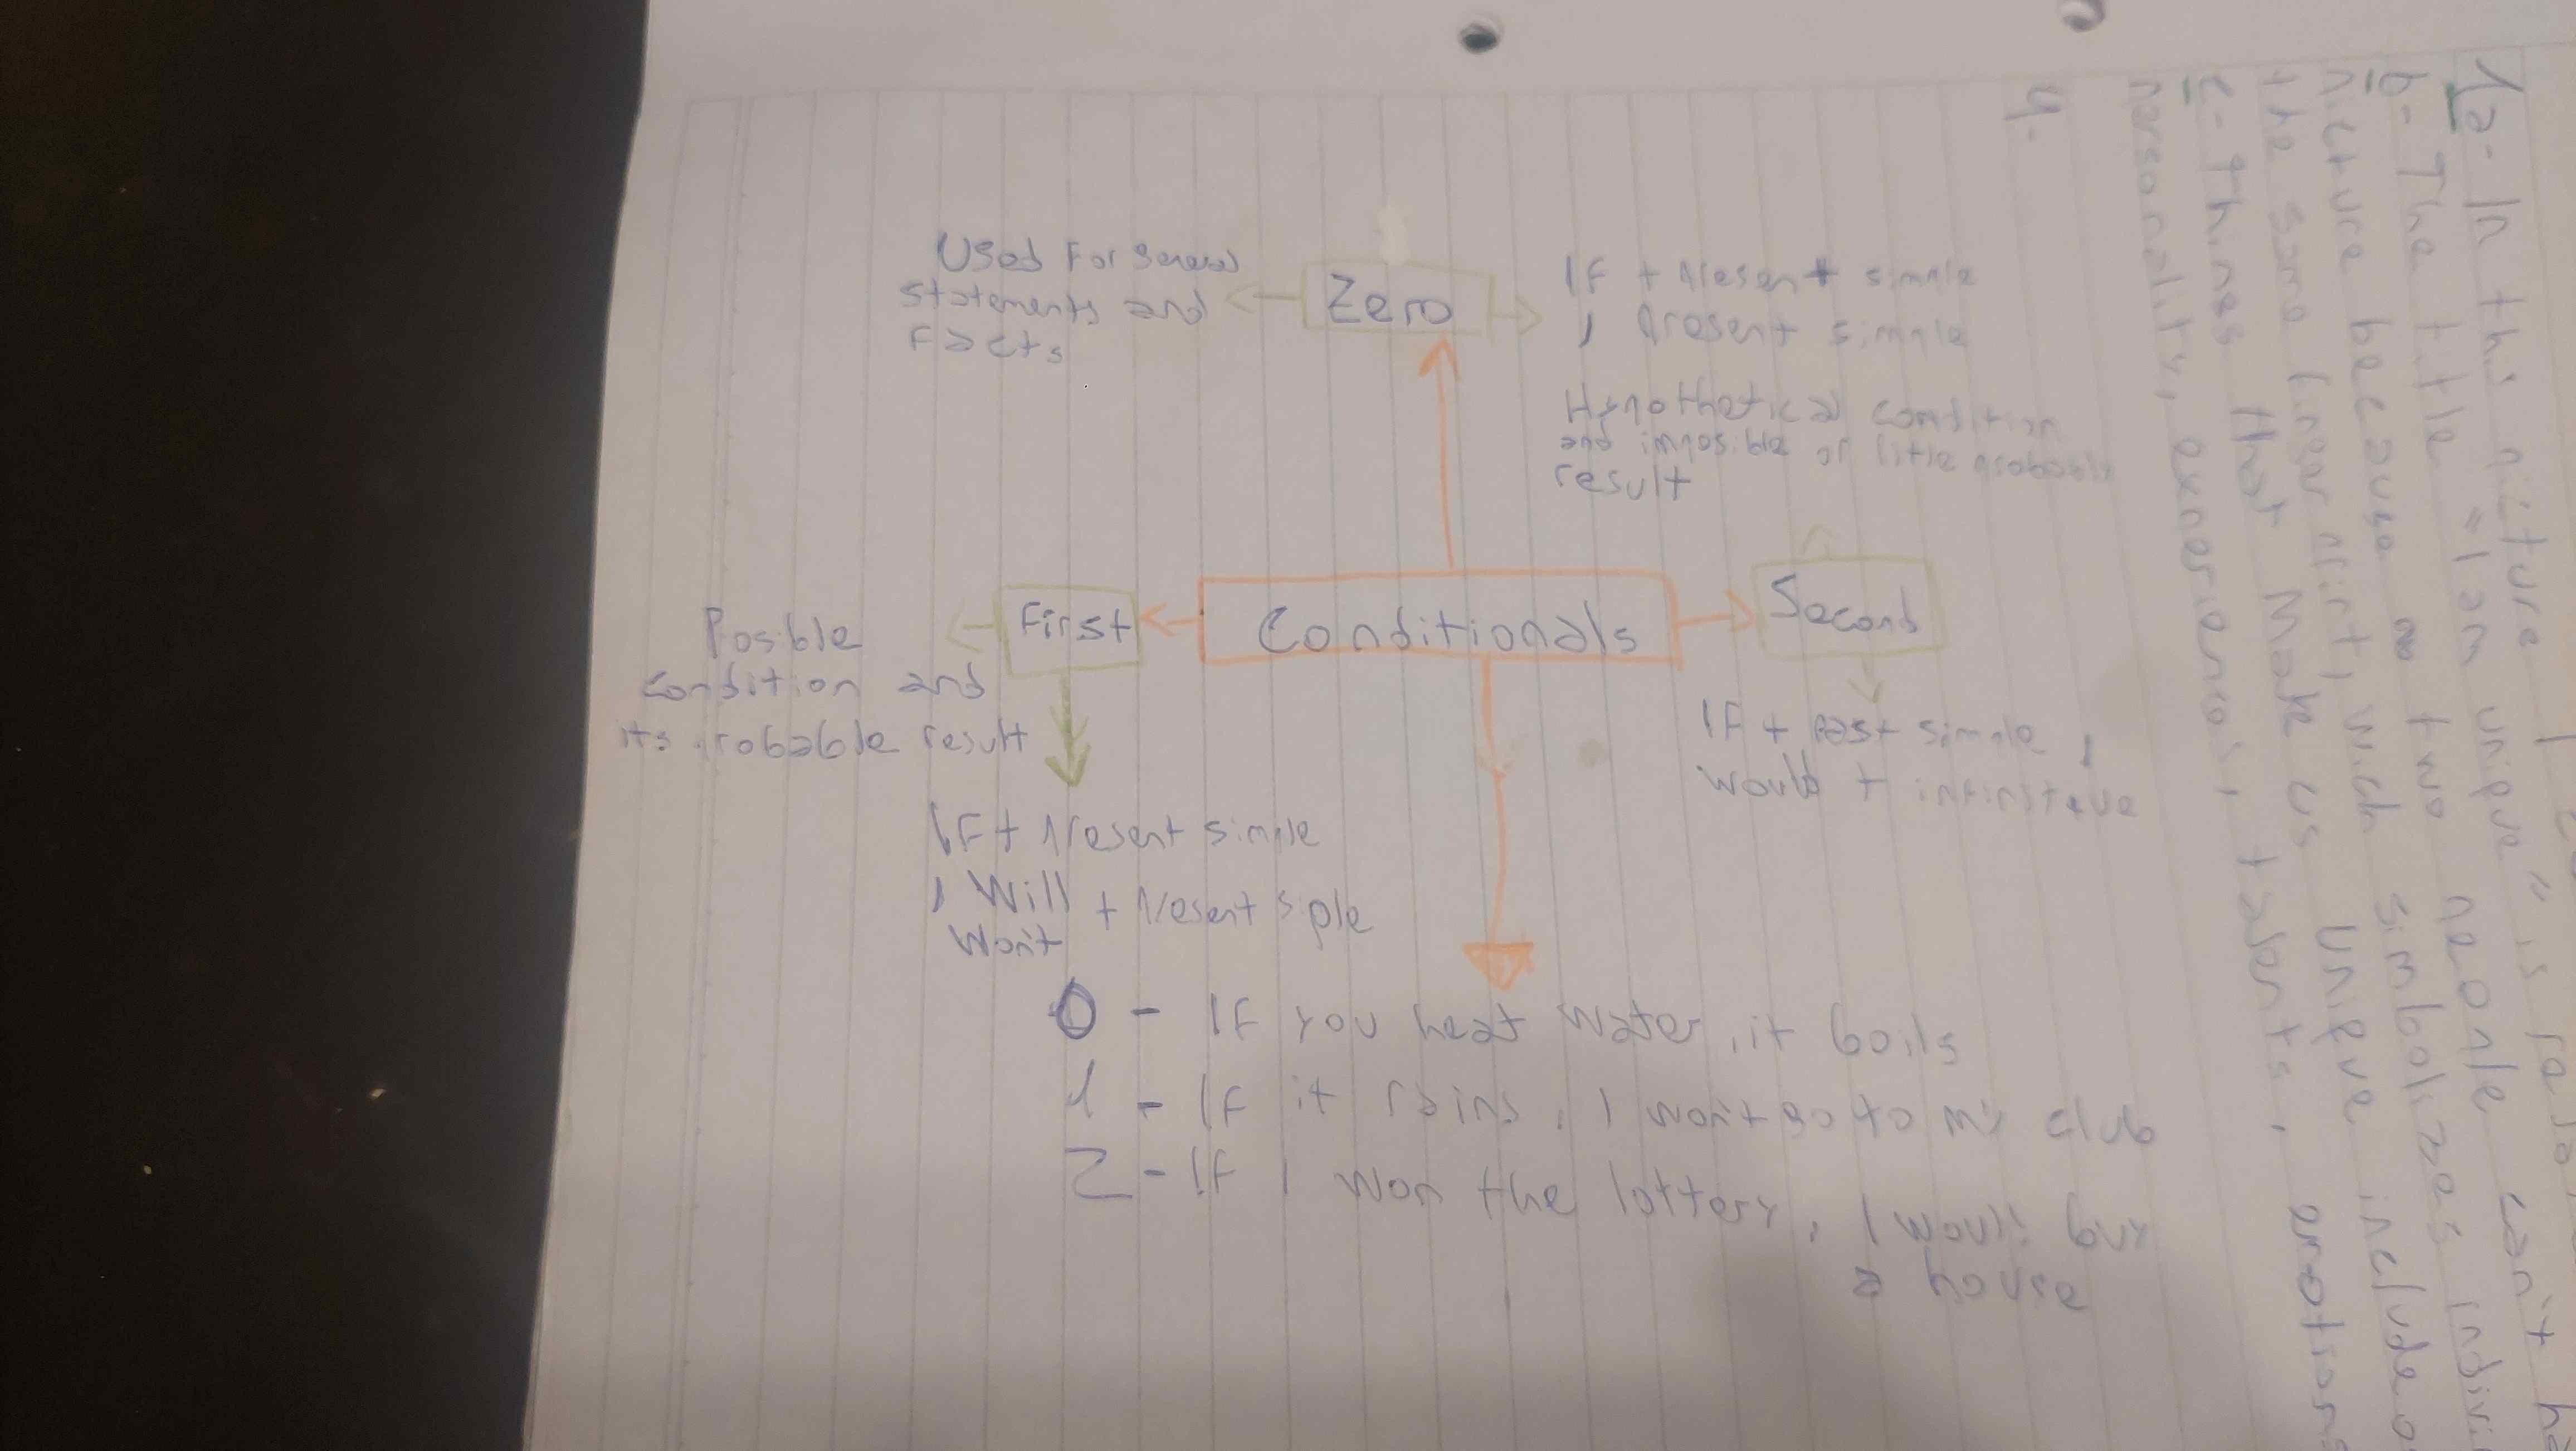 Used For general
statements and
Facts
Zero
IF + Present simple
, Present simple
Hypothetical condition
and imposible or litle probable
result
Conditionals
First
Posible
condition and
its probable result
IF + Present simple
, Will
Won't
+ Present siple
Second
IF + Past simple ,
would + infinitive
0 - IF you heat water, it boils
1 - IF it rains, I won't go to my club
2 - If I won the lottery, I would buy
a house
1a- In the picture
b- The title "I an unique" is
picture because a two people can't
the same finger print, wich simbolizes
c- Things that Make us Unique include
personality, experience, talents, emotions
4-